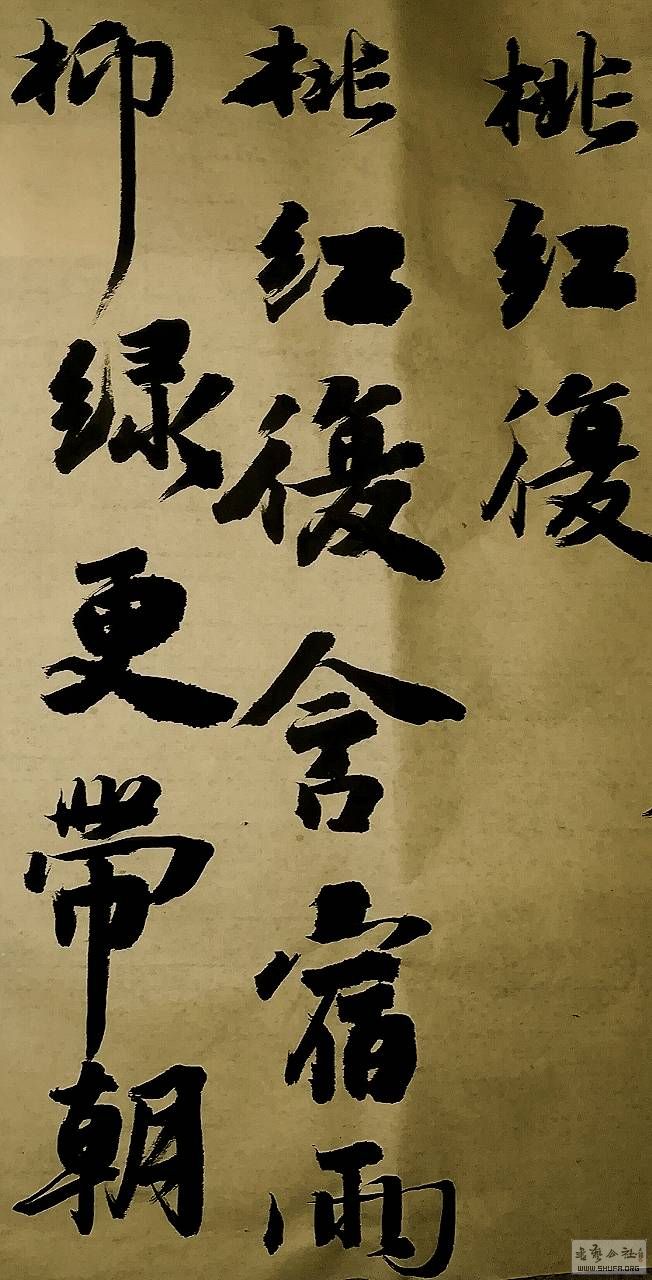 桃红復
桃红復含宿雨
柳绿更帶朝
WWW.SHUFA.ORG